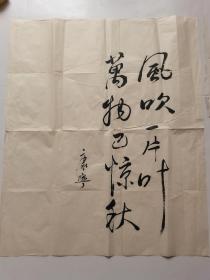 風吹一片叶
萬物已惊秋